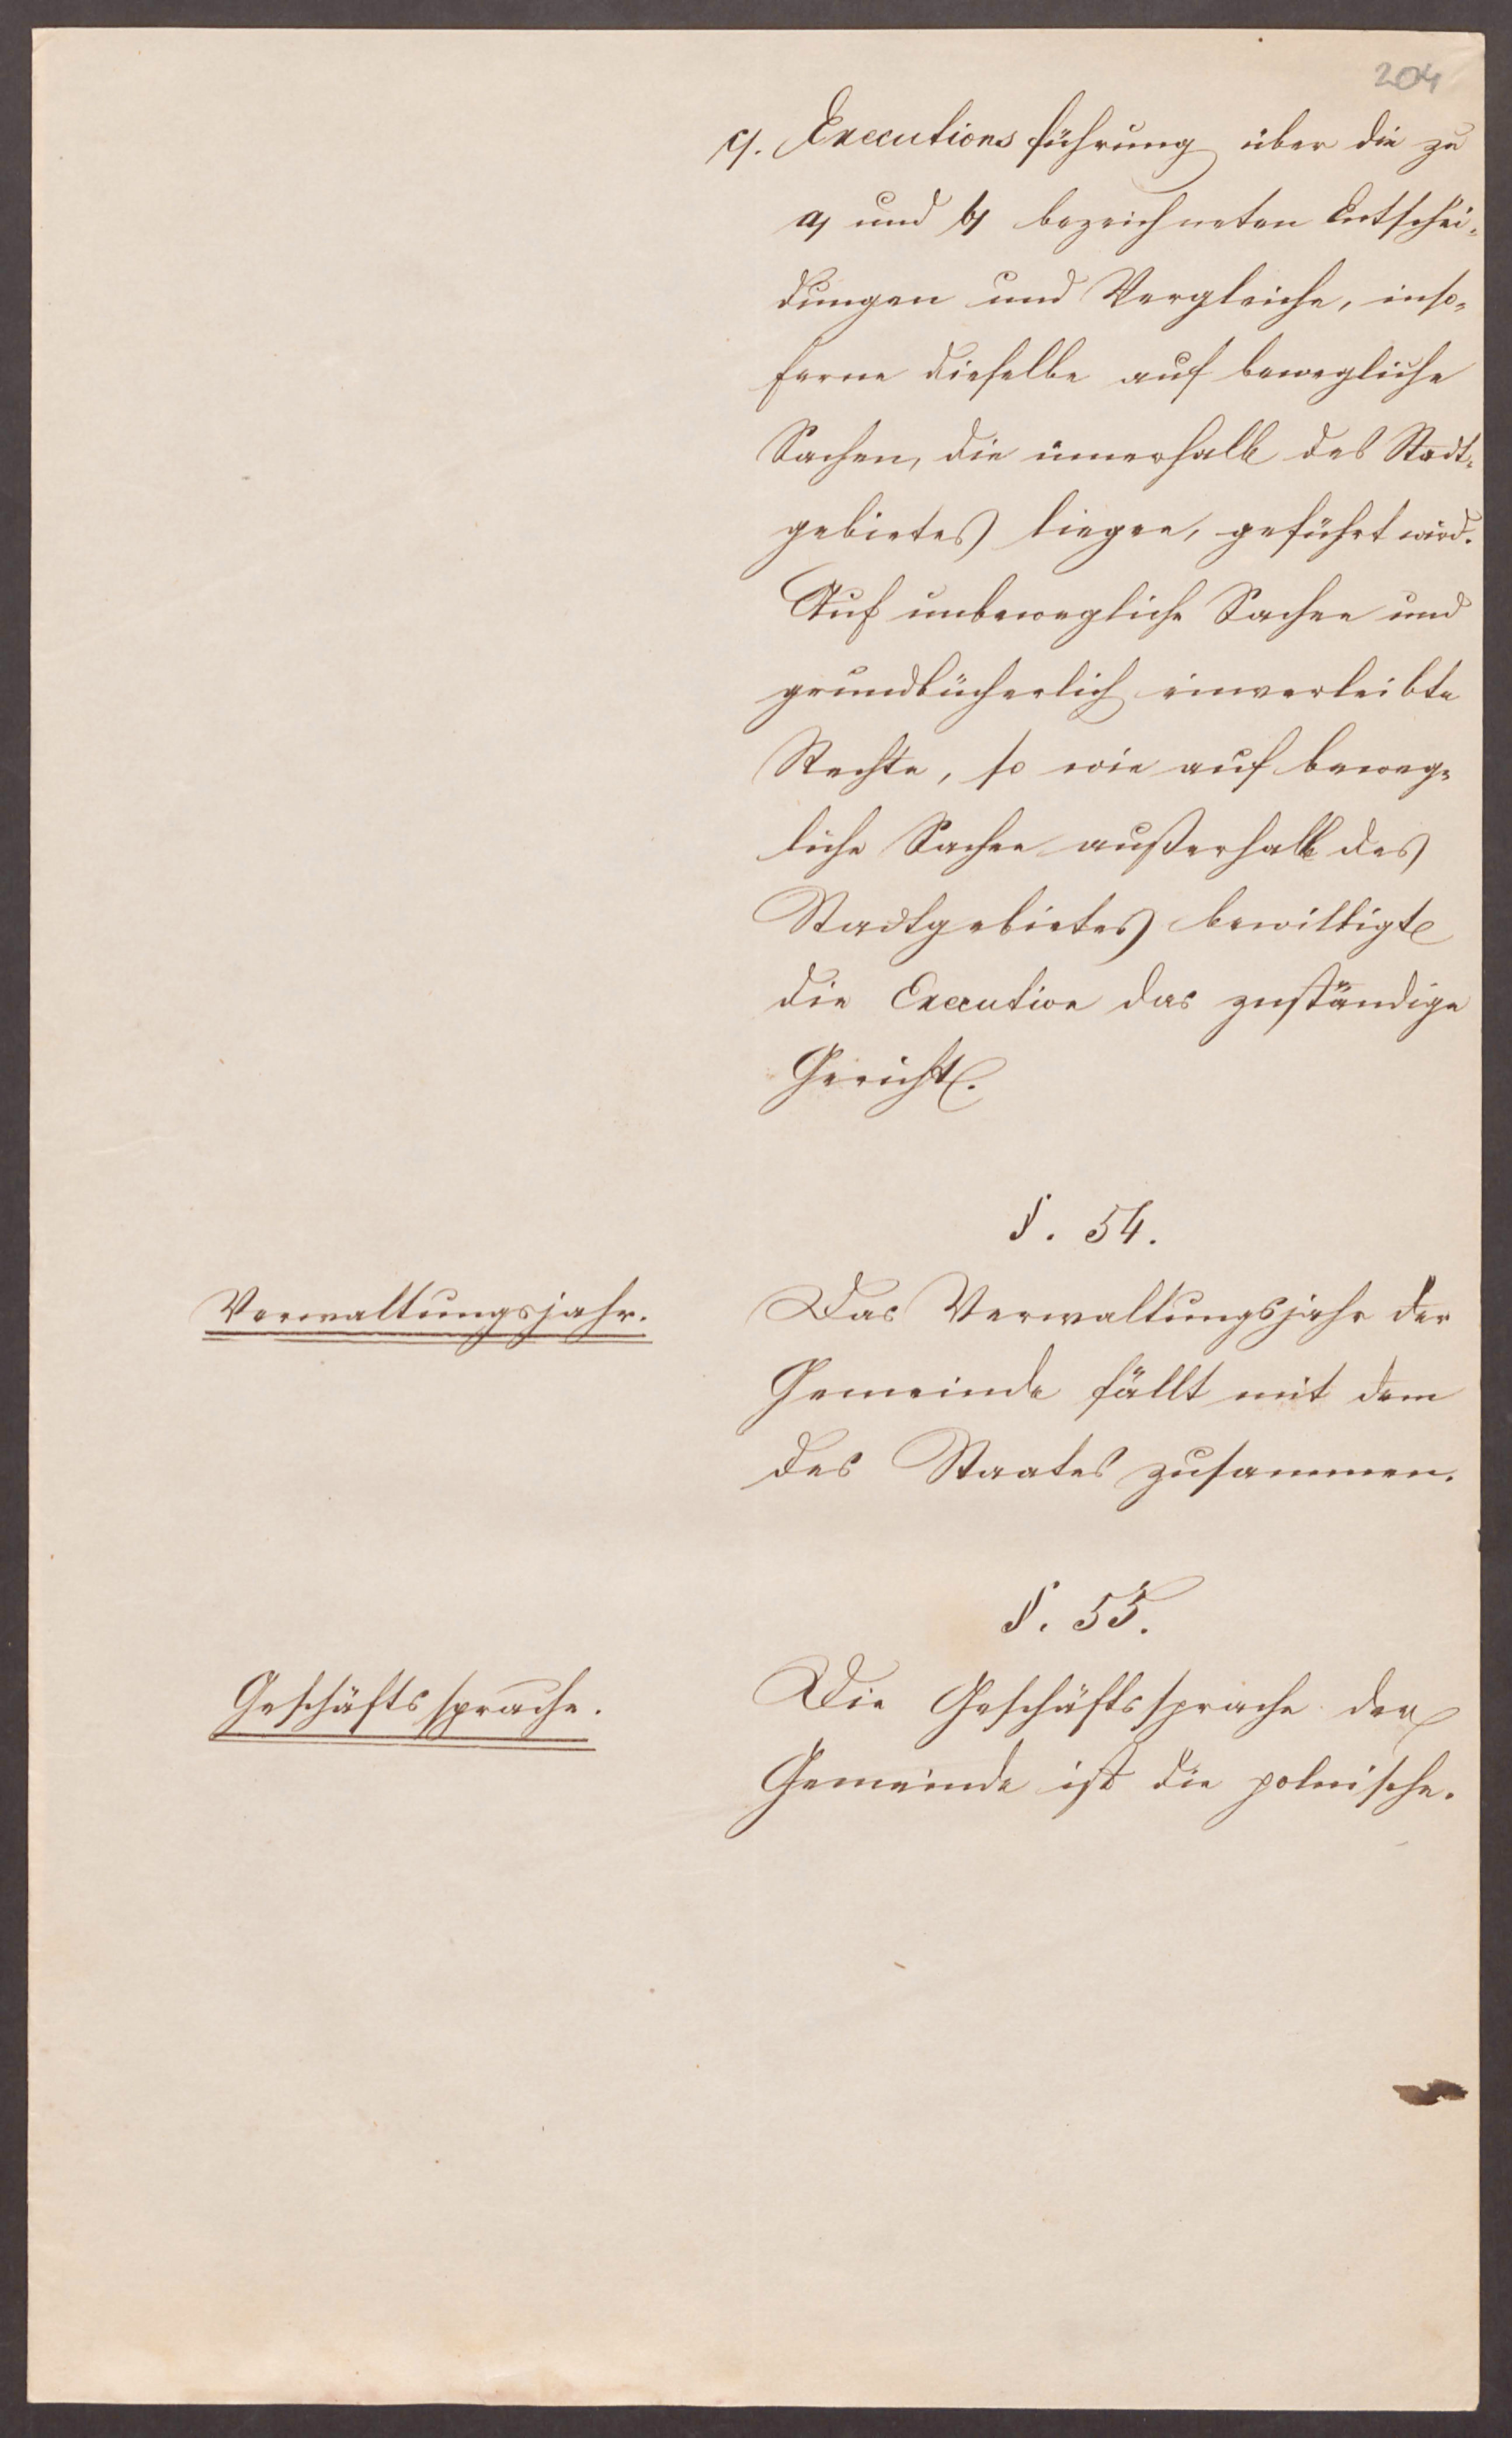 204
c). Executionsführung über die zu
a) und b) bezeichneten Entschei-
dungen und Vergleiche, inso-
ferne dieselbe auf bewegliche
Sachen, die innerhalb des Stadt-
gebietes liegen, geführt wird.
Auf unbewegliche Sachen und
grundbücherlich einverleibte
Rechte, so wie auf beweg-
liche Sachen außerhalb des
Stadtgebietes bewilligte
die Execution das zuständige
Gericht.
§. 54.
Verwaltungsjahr.
Das Verwaltungsjahr der
Gemeinde fällt mit dem
des Staates zusammen.
§. 55.
Geschäftssprache.
Die Geschäftssprache der
Gemeinde ist die polnische.